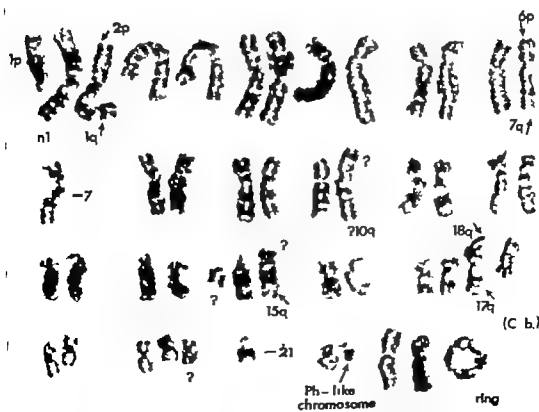 6p
2p
1p
n1 1q 7q†
?
−7
?10q
18q
?
? 15q 17q
(C b.)
−21
?
Ph-like
chromosome
ring